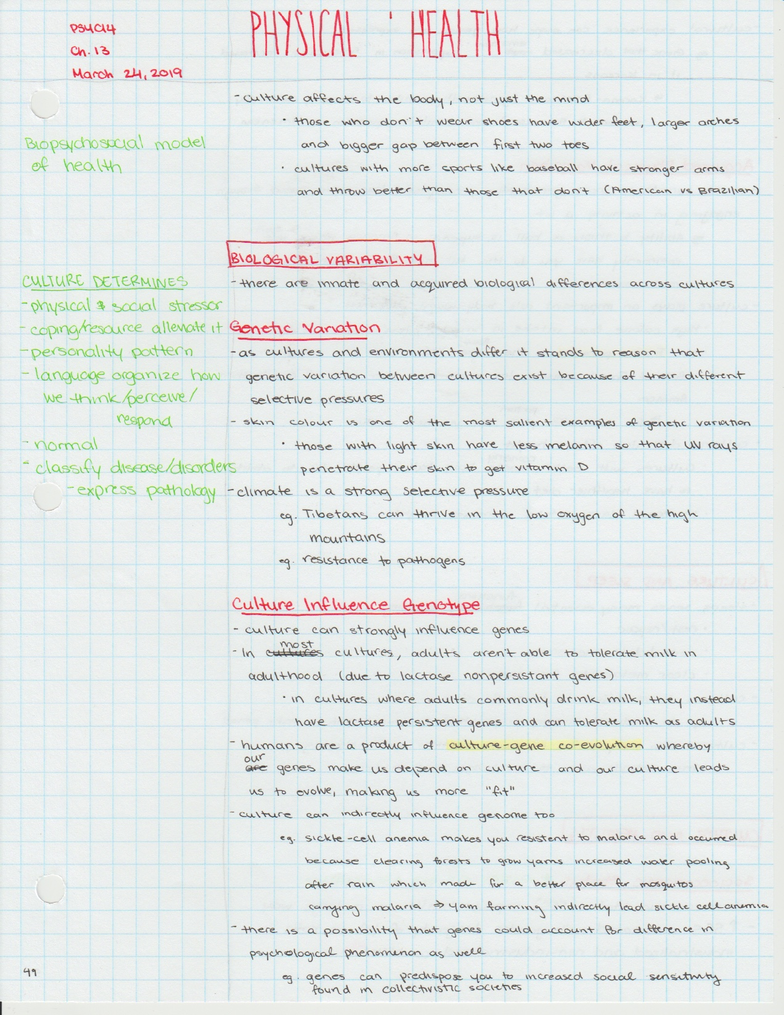 PSYC14
Ch. 13
March 24, 2019
PHYSICAL HEALTH
- culture affects the body, not just the mind
· those who don't wear shoes have wider feet, larger arches
and bigger gap between first two toes
· cultures with more sports like baseball have stronger arms
and throw better than those that don't (American vs Brazilian)
Biopsychosocial model
of health
BIOLOGICAL VARIABILITY
- there are innate and acquired biological differences across cultures
CULTURE DETERMINES
- physical & social stressor
- coping/resource alleviate it
- personality pattern
- language organize how
we think/perceive/
respond
- normal
- classify disease/disorders
- express pathology
Genetic Variation
- as cultures and environments differ it stands to reason that
genetic variation between cultures exist because of their different
selective pressures
- skin colour is one of the most salient examples of genetic variation
· those with light skin have less melanin so that UV rays
penetrate their skin to get vitamin D
- climate is a strong selective pressure
eg. Tibetans can thrive in the low oxygen of the high
mountains
eg. resistance to pathogens
Culture Influence Genotype
- culture can strongly influence genes
- In most cultures, adults aren't able to tolerate milk in
adulthood (due to lactase nonpersistant genes)
· in cultures where adults commonly drink milk, they instead
have lactase persistent genes and can tolerate milk as adults
- humans are a product of culture-gene co-evolution whereby
our genes make us depend on culture and our culture leads
us to evolve, making us more "fit"
- culture can indirectly influence genome too
eg. sickle-cell anemia makes you resistent to malaria and occurred
because clearing forests to grow yams increased water pooling
after rain which made for a better place for mosquitos
carrying malaria → yam farming indirectly lead sickle cell anemia
- there is a possibility that genes could account for difference in
psychological phenomenon as well
eg. genes can predispose you to increased social sensitivity
found in collectivistic societies
49